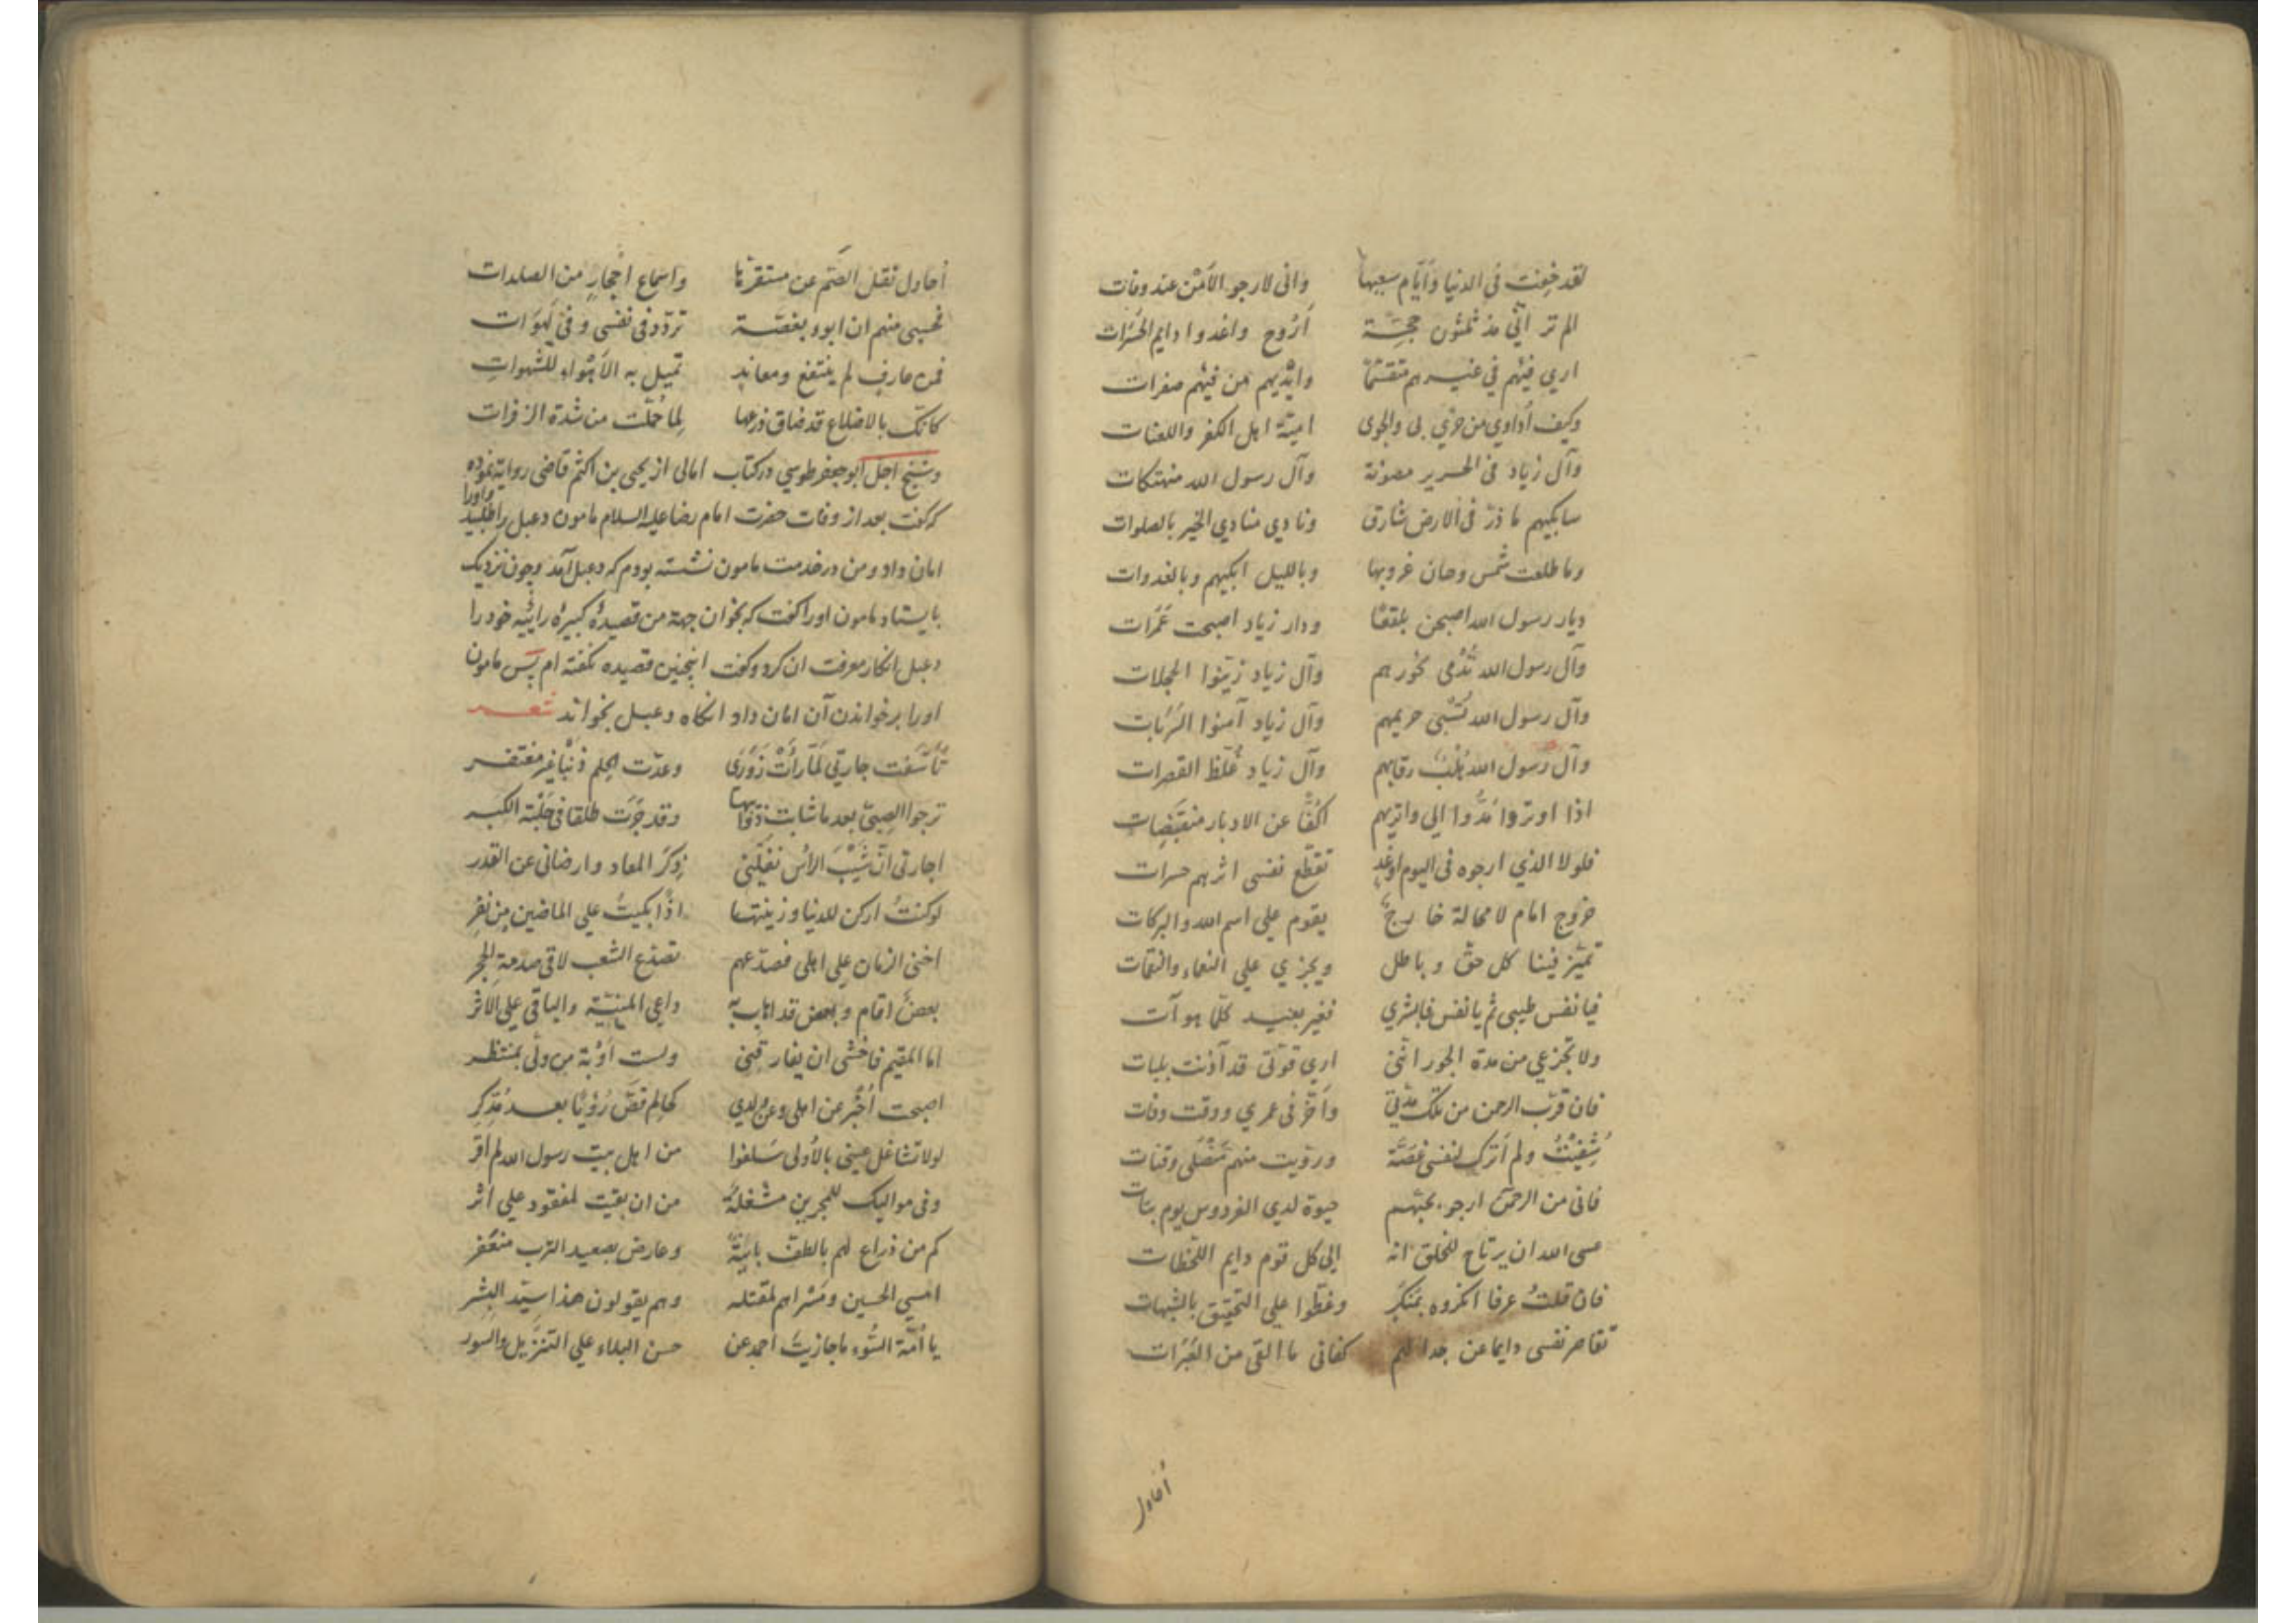 لقد خفت في الدنيا وأيام سعيها وإني لارجو الأمن عند وفات
الم تر أنّي مذ ثلثون حجّة أَرُوح واغدوا دايم الحَسَرات
اري فيئهم في غيرهم متقسّمًا وايديهم من فيئهم صفرات
وكيف أداوي من جوي بي والجوى اميّة اهل الكفر واللعنات
وآل زياد في الحرير مصونة وآل رسول الله منهتكات
سابكيهم ما ذرّ في الارض شارق ونادي منادي الخير بالصلوات
وما طلعت شمس وحان غروبها وبالليل ابكيهم وبالغدوات
ديار رسول الله اصبحن بلقعًا ودار زياد اصبحت عَمَرات
وآل رسول الله تُدْمى نحورهم وآل زياد زيّنوا الحجلات
وآل رسول الله تُسْبى حريمهم وآل زياد آمنوا السَرَبات
وآل رسول الله رقابهم وآل زياد غُلّظ القصرات
اذا اوتروا مَدُّوا الي واتريهم اكُفًّا عن الاوتار منقبَضِات
فلولا الذي ارجوه في اليوم اوغدٍ تقطّع نفسى اثرهم حسرات
خروج امام لا محالة خارجٌ يقوم علي اسم الله والبركات
تميّز فينا كل حقّ وباطل ويجزي علي النعماء والنقمات
فيا نفس طيبى ثم يا نفس فابشري فغير بعيد كلّما هو آت
ولا تجزعي من مدة الجور انّنى اري قوّتى قد آذنت بثبات
فان قرّب الرحمن من تلك مدّتي وأخّر في عمري ووقت وفات
شُفِيْتُ ولم أترك لنفسى غصّة وروّيت منهم مُنْصُلى وقنات
فانى من الرحمن ارجو بحبّهم حيوة لدي الفردوس يوم بتات
عسى الله ان يرتاح للخلق انه الي كل قوم دايم اللّحظات
فان قلتُ عرفا انكروه بمنكَر وغطّوا علي التحقيق بالشبهات
تقاصر نفسى دايما عن جدالهم كفانى ما القى من العَبَرات
أحاول
أحاول نقل الصُّم عن مستقرّها واسماع احْجارٍ من الصلدات
فحسبى منهم ان ابوء بغصّة تردّد فى نفسى وفى لَهَوَات
فمن عارف لم ينتفع ومعاند تميل به الأهْواء للشهوات
كانّك بالاضلاع قد ضاق ذرعها لِما حُمّلت من شدة الزفرات
وشيخ اجل ابو جعفر طوسي در كتاب امالى از يحيى بن اكثم قاضى روايه نموده
كه كفت بعد از وفات حضرت امام رضا عليه السلام مامون دعبل را طلبيد واورا
امان داد ومن در خدمت مامون نشسته بودم كه دعبل آمد وچون نزديك
بايستاد مامون اورا كفت كه بخوان جهة من قصيدهٔ كبيرهٔ رائيّه خود را
دعبل انكار معرفت ان كرد وكفت اينچنين قصيده نكفته ام پس مامون
اورا بر خواندن آن امان داد انكاه دعبل بخواند شعر
تأسّفت جارتي لمّا رأتْ زَوَرى وعدّت الحِلم ذنْبا غير مغتفر
ترجوا الصِبىٰ بعد ما شابت ذوائبها وقد جَرَت طلقا في حَلْبة الكبر
اجارتى انّ شَيْبَ الرأس نفّلنى ذِكرَ المعاد وارضانى عن القدر
لوكنتُ اركن للدنيا وزينتها اذًا بكيتُ علي الماضين من نفر
اخنى الزمان علي اهلى فصدّعهم تصدّع الشعب لاقى صدمة الحجر
بعضٌ اقام وبعض قد اهاب به داعي المنيّة والباقي علي الاثر
اما المقيم فاخشى ان يفارقنى ولست أوْبة من ولّى بمنتظر
اصبحت اُخْبر عن اهلى وعن ولدي كحالم قصّ رؤيًا بعد مُدّكر
لولا تشاغل عينى بالأولى سَلفوا من اهل بيت رسول الله لم اقر
وفى مواليك للمحزين مشغلة من ان بقيت لمفقود علي اثر
كم من ذراع لهم بالطفّ بائنة وعارض بصعيد الترب منعفر
امسي الحسين ومسراهم لمقتله وهم يقولون هذا سيّد البشر
يا أمّة السُّوء ما جازيت احمد عن حسن البلاء علي التنزيل والسور